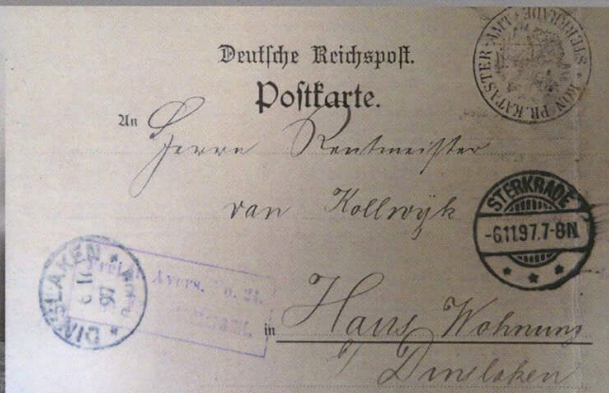 Deutsche Reichspost.
Postkarte.
KÖN. PR. KATASTER-AMT STERKRADE
An Herrn Rentmeister
van Kollwyk
STERKRADE
-6.11.97.7-8N.
DINSLAKEN
6 11
97
Avers. No. 21.
in Haus Wohnung
b/ Dinslaken